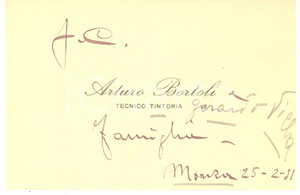 f. c.
Arturo Bortoli e
TECNICO TINTORIA Gerardo
Famiglia
Monza 25-2-31